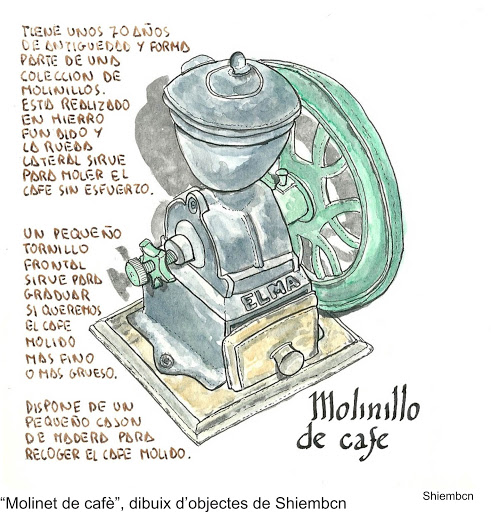 TIENE UNOS 70 AÑOS
DE ANTIGUEDAD Y FORMA
PARTE DE UNA
COLECCION DE
MOLINILLOS.
ESTA REALIZADO
EN HIERRO
FUNDIDO Y
LA RUEDA
LATERAL SIRVE
PARA MOLER EL
CAFE SIN ESFUERZO.
UN PEQUEÑO
TORNILLO
FRONTAL
SIRVE PARA
GRADUAR
SI QUEREMOS
EL CAFE
MOLIDO
MAS FINO
O MAS GRUESO.
DISPONE DE UN
PEQUEÑO CAJON
DE MADERA PARA
RECOGER EL CAFE MOLIDO.
ELMA
Molinillo
de cafe
“Molinet de cafè”, dibuix d’objectes de Shiembcn
Shiembcn